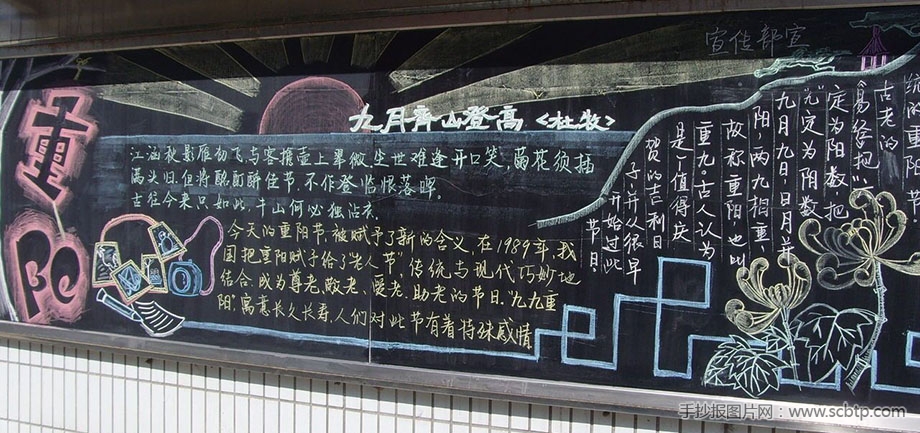 重阳
宣传部宣
九月齐山登高<杜牧>
江涵秋影雁初飞,与客携壶上翠微,尘世难逢开口笑,菊花须插
满头归.但将酩酊酬佳节,不作登临恨落晖.
古往今来只如此,牛山何必独沾衣.
今天的重阳节,被赋予了新的含义,在1989年,我
国把重阳赋予给了"老人节"传统与现代巧妙地
结合,成为尊老、敬老、爱老、助老的节日."九九重
阳",寓意长久长寿,人们对此节有着特殊感情
统的重阳节
古老的
《易经》把
定为阴数,把
"九"定为阳数
九月九日,日月并
阳,两九相重,
故称重阳,也叫
重九。古人认为
是一值得庆
贺的吉利日
子,并从很早
开始过此
节日。
手抄报图片网:www.scbtp.com